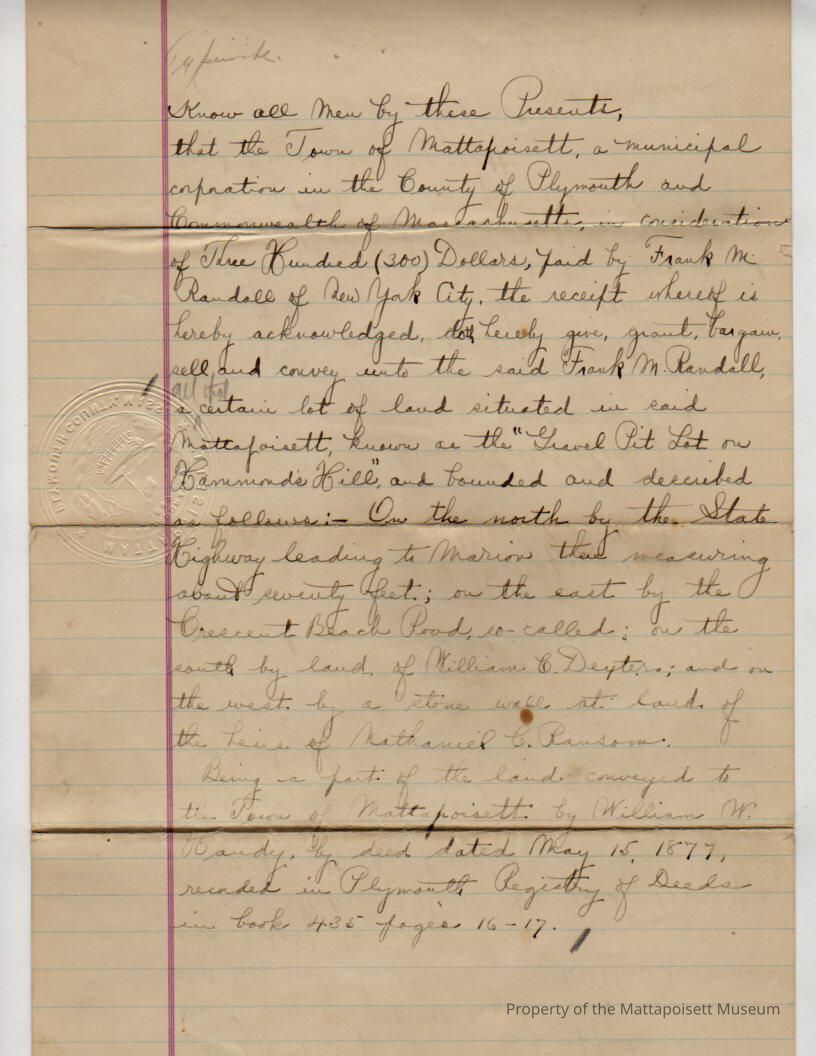 Typewrite.
Know all Men by these Presents,
that the Town of Mattapoisett, a municipal
corporation in the County of Plymouth and
Commonwealth of Massachusetts, in consideration
of Three Hundred (300) Dollars, paid by Frank M.
Randall of New York City, the receipt whereof is
hereby acknowledged, doth hereby give, grant, bargain,
sell, and convey unto the said Frank M. Randall,
all that
a certain lot of land situated in said
Mattapoisett, known as the "Gravel Pit Lot on
Hammond's Hill", and bounded and described
as follows:- On the north by the State
Highway leading to Marion there measuring
about seventy feet; on the east by the
Crescent Beach Road, so-called; on the
south by land of William C. Dexter; and on
the west by a stone wall at land of
the heirs of Nathaniel C. Ransom.
Being a part of the land conveyed to
the Town of Mattapoisett by William W.
Handy, by deed dated May 15, 1877,
recorded in Plymouth Registry of Deeds
in book 435 pages 16-17.
Property of the Mattapoisett Museum